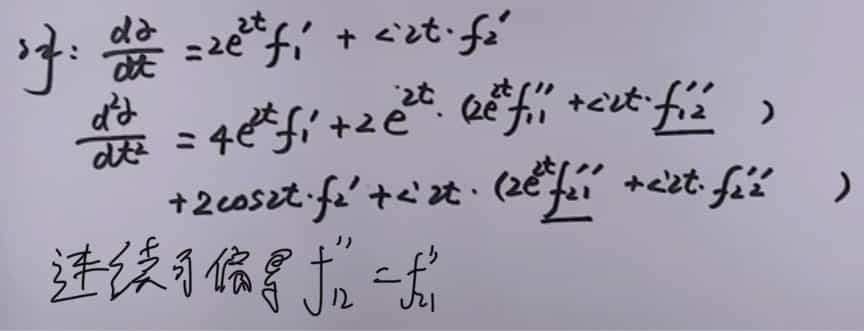 解: dz/dt = 2e^{2t} f_1' + sin2t · f_2'
d²z/dt² = 4e^{2t} f_1' + 2e^{2t} · (2e^{2t} f_{11}'' + sin2t · f_{12}'')
+ 2cos2t · f_2' + sin2t · (2e^{2t} f_{21}'' + sin2t · f_{22}'')
连续可偏导 f_{12}'' = f_{21}''